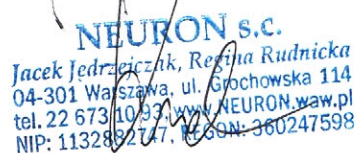 NEURON s.c.
Jacek Jędrzejczak, Regina Rudnicka
04-301 Warszawa, ul. Grochowska 114
tel. 22 673 10 93, www.NEURON.waw.pl
NIP: 1132882747, REGON: 360247598